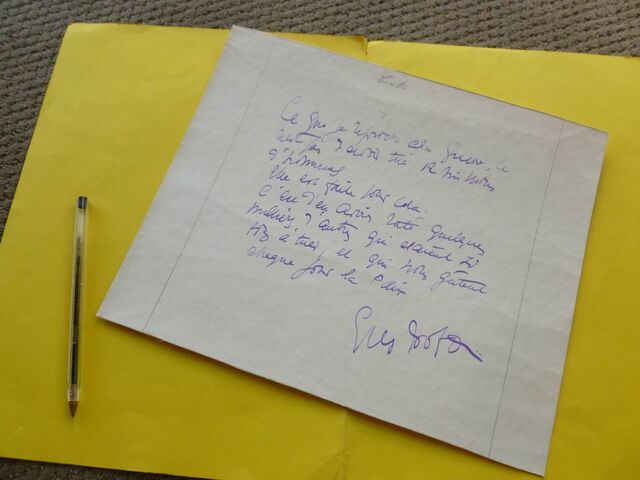 Ce que je reproche à la guerre, ce
n'est pas d'avoir tué 12 millions
d'hommes
elle est faite pour cela.
C'est d'en avoir raté quelques
milliers d'autres qui étaient si
à tuer et qui nous gâtent
chaque jour la Paix
Gus Bofa